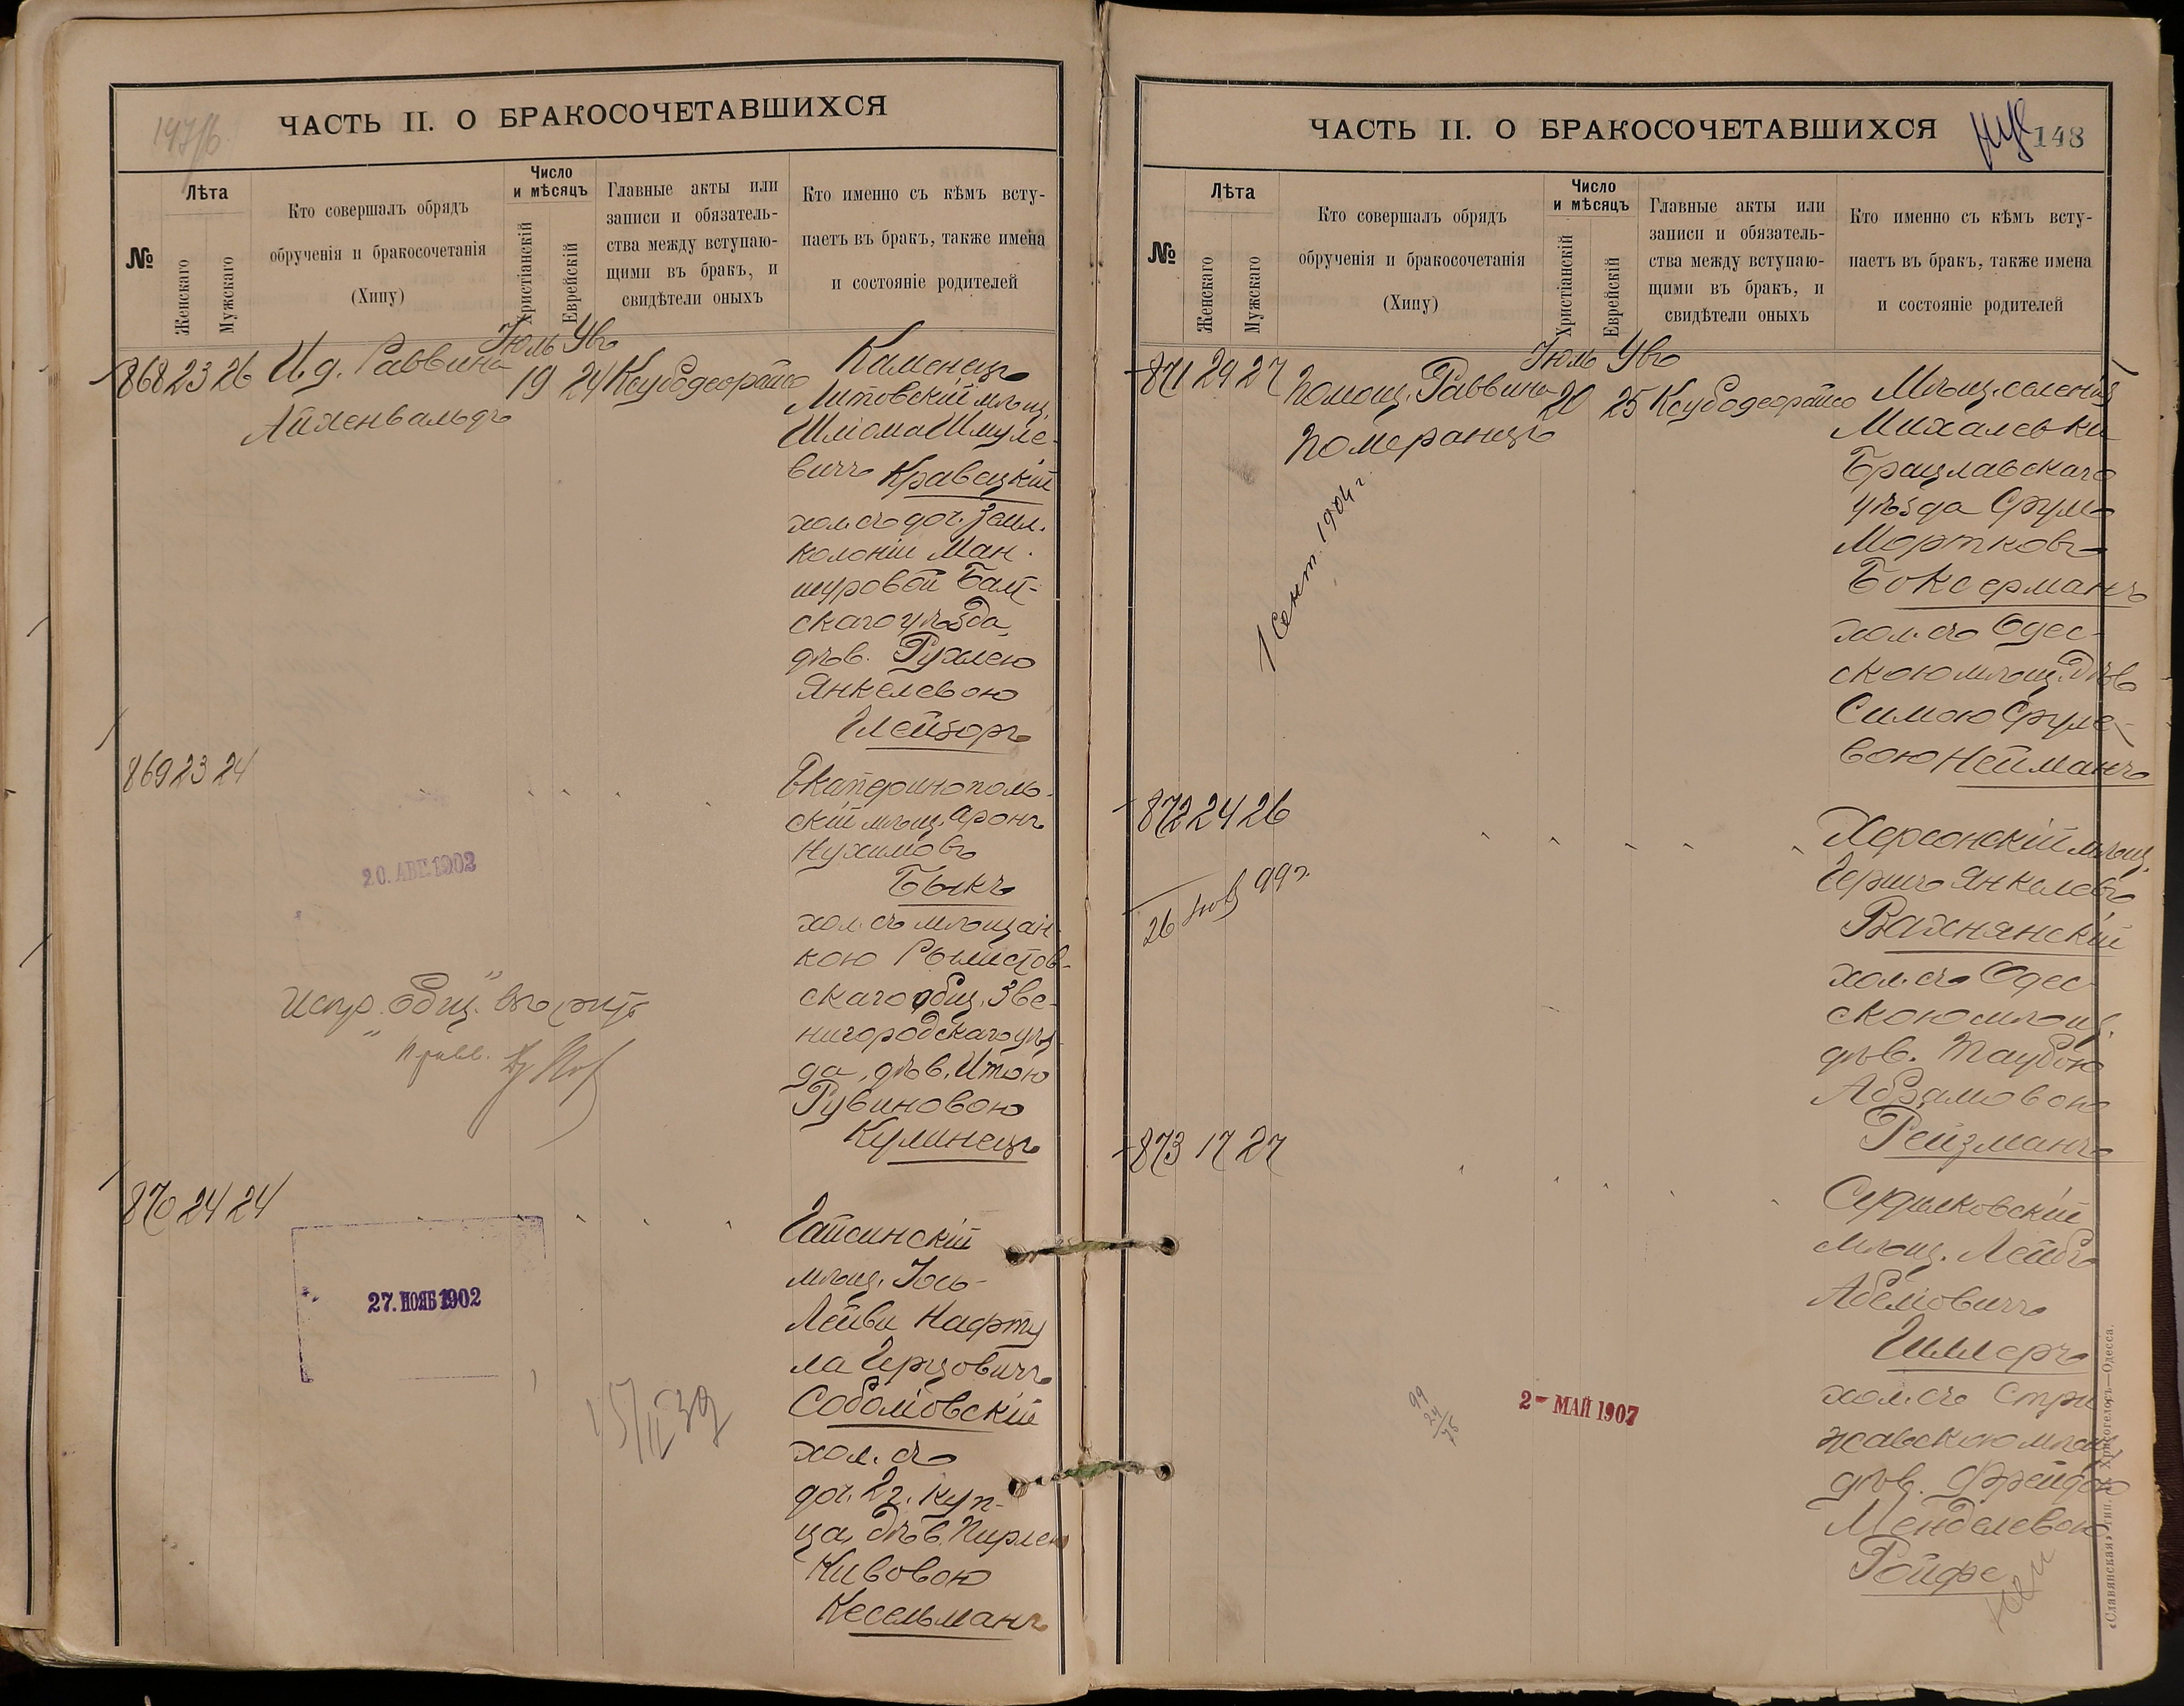 147/б
ЧАСТЬ II. О БРАКОСОЧЕТАВШИХСЯ
№
Лѣта
Женскаго
Мужскаго
Кто совершалъ обрядъ
обрученія и бракосочетанія
(Хипу)
Число
и мѣсяцъ
Христіанскій
Еврейскій
Главные акты или
записи и обязатель-
ства между вступаю-
щими въ бракъ, и
свидѣтели оныхъ
Кто именно съ кѣмъ всту-
паетъ въ бракъ, также имена
и состояніе родителей
Іюль Увъ
868 23 26 И.д. Раввина 19 24 Ксубодеорайсо
Айхенвальдъ
Каменецъ
Литовскій мѣщ.
Шлiома Шмуле-
вичъ Кравецкій
хол. съ доч. Земл.
колоніи Ман-
журовой Балт-
скаго уѣзда,
дѣв. Рухлею
Янкелевою
Глейзеръ
869 23 24
Екатеринополь-
скій мѣщ. Аронъ
Нухимовъ
Быкъ
хол. съ мѣщан-
кою
скаго общ. Зве-
нигородскаго уѣз-
да, дѣв. Итою
Рувиновою
Кулинецъ
20. АВГ. 1902
Испр. "общ."
870 24 24
Гайсинскій
мѣщ. Іось-
Лейви Нафту
ла Герцовичъ
Соболіовскій
хол. съ
доч. 2 г. куп-
ца, дѣв. Пирлею
Кивовою
Кесельманъ
27. НОЯБ 1902
15/II 39
ЧАСТЬ II. О БРАКОСОЧЕТАВШИХСЯ
148
№
Лѣта
Женскаго
Мужскаго
Кто совершалъ обрядъ
обрученія и бракосочетанія
(Хипу)
Число
и мѣсяцъ
Христіанскій
Еврейскій
Главные акты или
записи и обязатель-
ства между вступаю-
щими въ бракъ, и
свидѣтели оныхъ
Кто именно съ кѣмъ всту-
паетъ въ бракъ, также имена
и состояніе родителей
Іюль Увъ
871 29 27 Помощ. Раввина 20 25 Ксубодеорайсо
Померанцъ
1 Сент. 1904 г.
Мѣщ. селенія
Михалевки
Брацлавскаго
уѣзда Сруль
Мортковъ
Боксерманъ
хол. съ Одес-
скою мѣщ. дѣв
Симою Сруле-
вою Нейманъ
872 24 26
26 99 г.
Херсонскій мѣщ.
Гершъ Янкелевъ
Вахнянскій
хол. съ Одес
скою мѣщ.
дѣв. Таубою
Абрамовою
Рейзманъ
873 17 27
мѣщ. Лейбъ
Абеліовичъ
Гиллеръ
хол. съ Стри
жавскою мѣщ.
дѣв. Фрейдою
Менделевою
Ройфе
2- МАЙ 1907
«Славянская» тип. Н. Хрисогелосъ—Одесса.